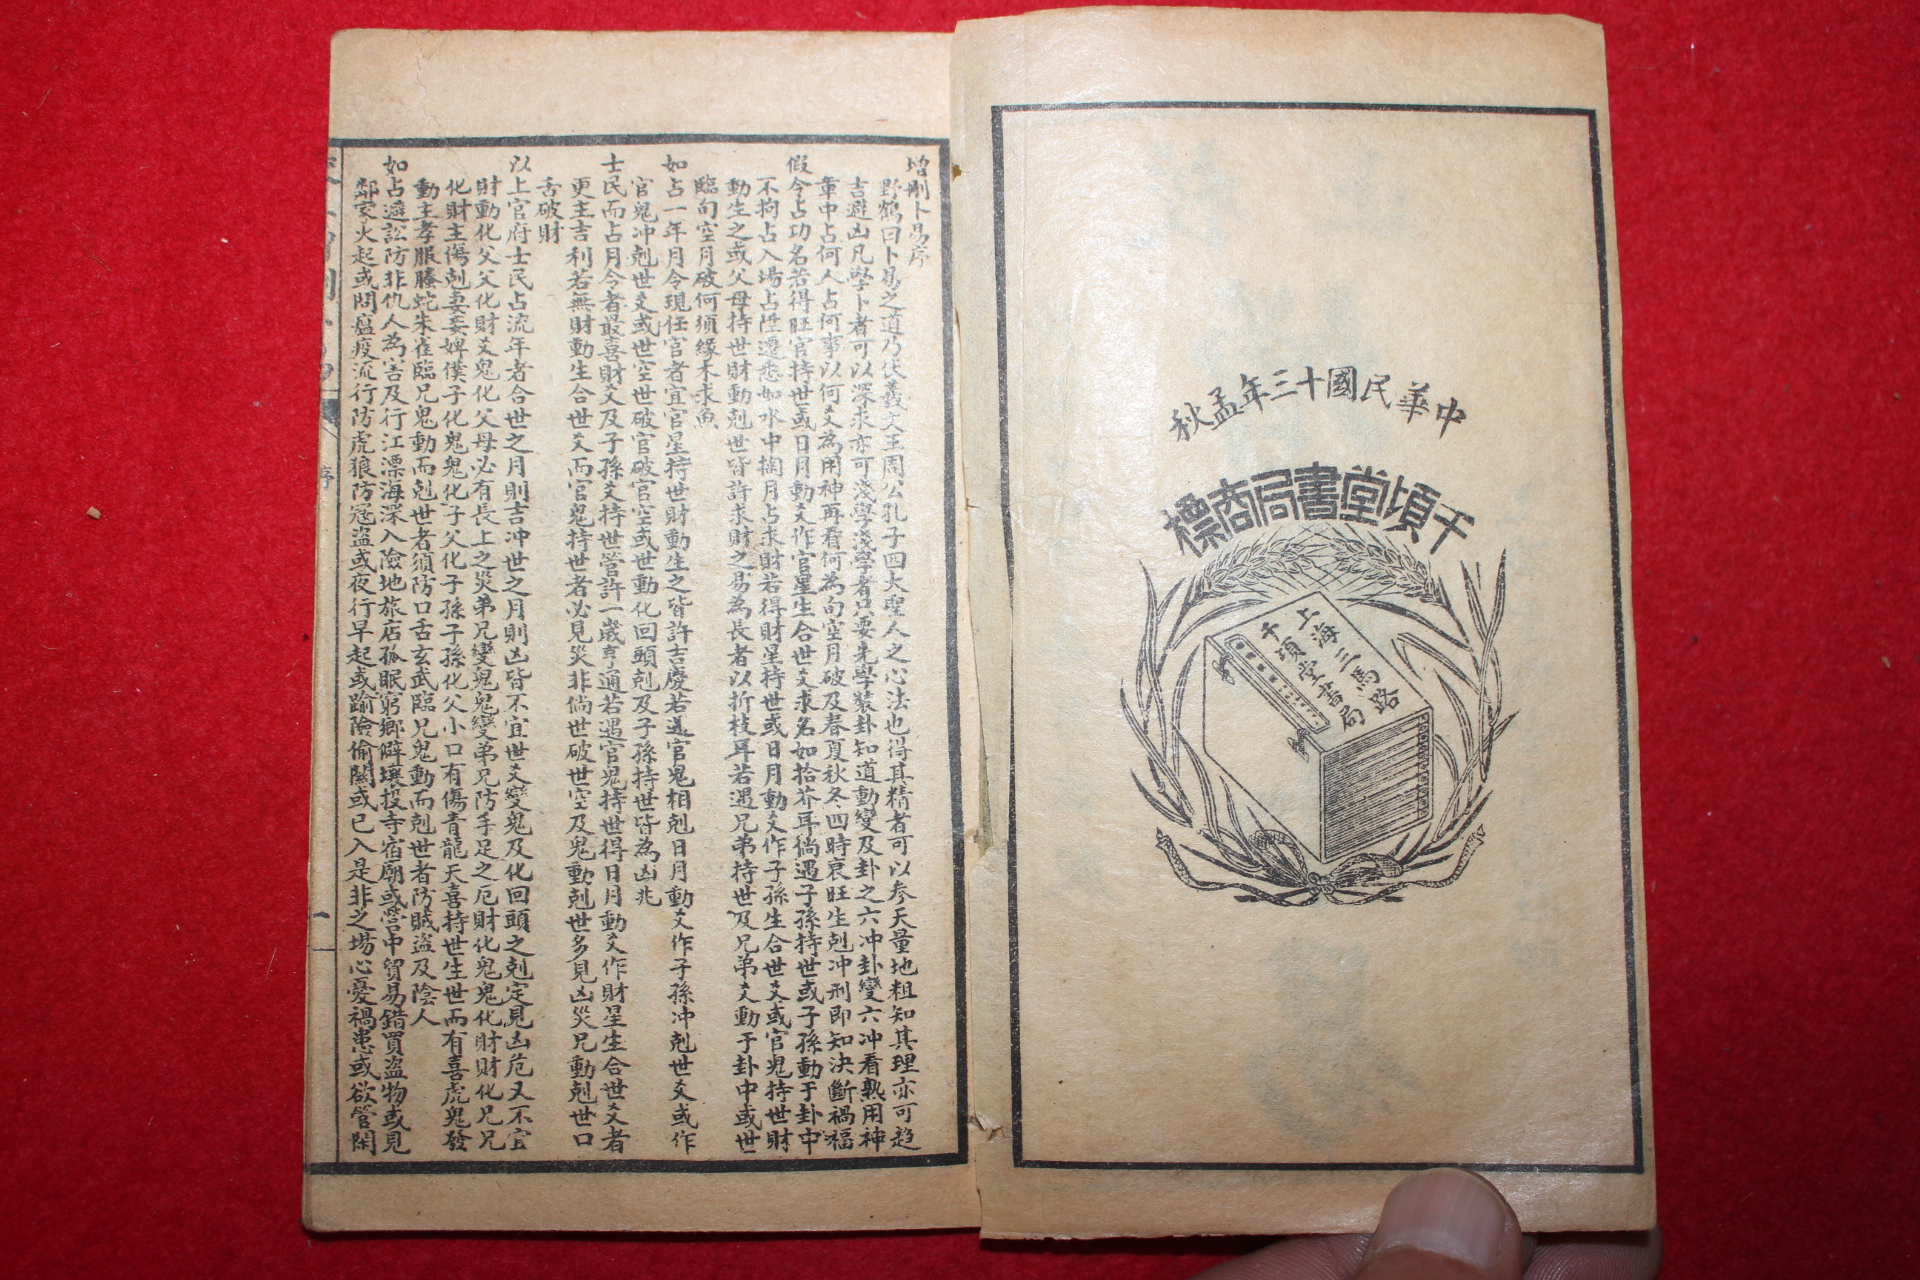 中華民國十三年孟秋
千頃堂書局商標
上海三馬路
千頃堂書局
增刪卜易序
野鶴曰卜易之道乃伏羲文王周公孔子四大聖人之心法也得其精者可以參天量地粗知其理亦可趨
吉避凶凡學卜者可以深求亦可淺學淺學者只要先學裝卦知道動變及卦之六冲卦變六冲看熟用神
章中占何人占何事以何爻為用神再看何為旬空月破及春夏秋冬四時衰旺生剋冲刑即知決斷禍福
假令占功名若得旺官持世或日月動爻作官星生合世爻求名如拾芥耳倘遇子孫持世或子孫動于卦中
不拘占入塲占陞遷悉如水中掬月占求財若得財星持世或日月動爻作子孫生合世爻或官鬼持世財
動生之或父母持世財動剋世皆許求財之易為長者以折枝耳若遇兄弟持世及兄弟爻動于卦中或世
臨旬空月破何須緣木求魚
如占一年月令現任官者宜官星持世財動生之皆許吉慶若遇官鬼相剋日月動爻作子孫冲剋世爻或作
官鬼冲剋世爻或世空世破官破官空或世動化回頭剋及子孫持世皆為凶兆
士民而占月令者最喜財爻及子孫爻持世管許一歲亨通若遇官鬼持世得日月動爻作財星生合世爻者
更主吉利若無財動生合世爻而官鬼持世者必見災非倘世破世空及鬼動剋世多見凶災兄動剋世口
舌破財
以上官府士民占流年者合世之月則吉冲世之月則凶皆不宜世爻變鬼及化回頭之剋定見凶危又不宜
財動化父父化財爻鬼化父母必有長上之災弟兄變鬼鬼變弟兄防手足之厄財化鬼鬼化財財化兄兄
化財主傷剋妻妾婢僕子化鬼鬼化子父化子孫子孫化父小口有傷青龍天喜持世生世而有喜虎鬼發
動主孝服螣蛇朱雀臨兄鬼動而剋世者須防口舌玄武臨兄鬼動而剋世者防賊盜及陰人
如占避訟防非仇人為害及行江漂海深入險地旅店孤眠窮鄉僻壤投寺宿廟或營中貿易錯買盜物或見
鄰家火起或問瘟疫流行防虎狼防寇盜或夜行早起或踰險偷關或已入是非之塲心憂禍患或欲管閑
序
一